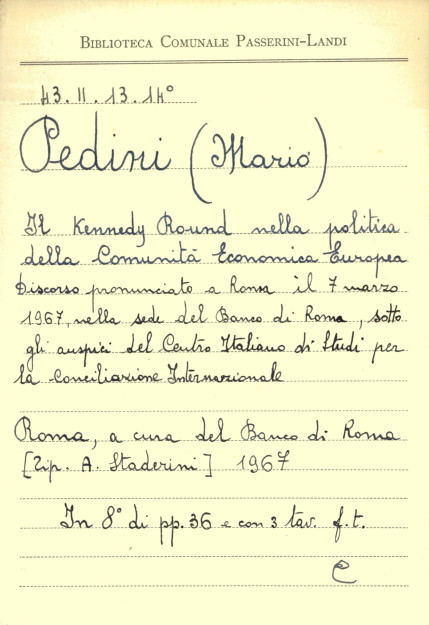 BIBLIOTECA COMUNALE PASSERINI-LANDI
43.II.13.14°
Pedini (Mario)
Il Kennedy Round nella politica
della Comunità Economica Europea
Discorso pronunciato a Roma il 7 marzo
1967, nella sede del Banco di Roma, sotto
gli auspici del Centro Italiano di Studi per
la Conciliazione Internazionale
Roma, a cura del Banco di Roma
[Tip. A. Staderini] 1967
In 8° di pp. 36 e con 3 tav. f.t.
C